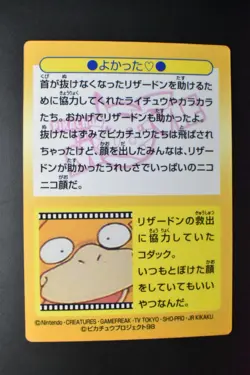 ●よかった♡●
首が抜けなくなったリザードンを助けるた
めに協力してくれたライチュウやカラカラ
たち。おかげでリザードンも助かったよ。
抜けたはずみでピカチュウたちは飛ばされ
ちゃったけど、顔を出したみんなは、リザー
ドンが助かったうれしさでいっぱいのニコ
ニコ顔だ。
リザードンの救出
に協力していた
コダック。
いつもとぼけた顔
をしていてもいい
やつなんだ。
©Nintendo・CREATURES・GAMEFREAK・TV TOKYO・SHO-PRO・JR KIKAKU
©ピカチュウプロジェクト98